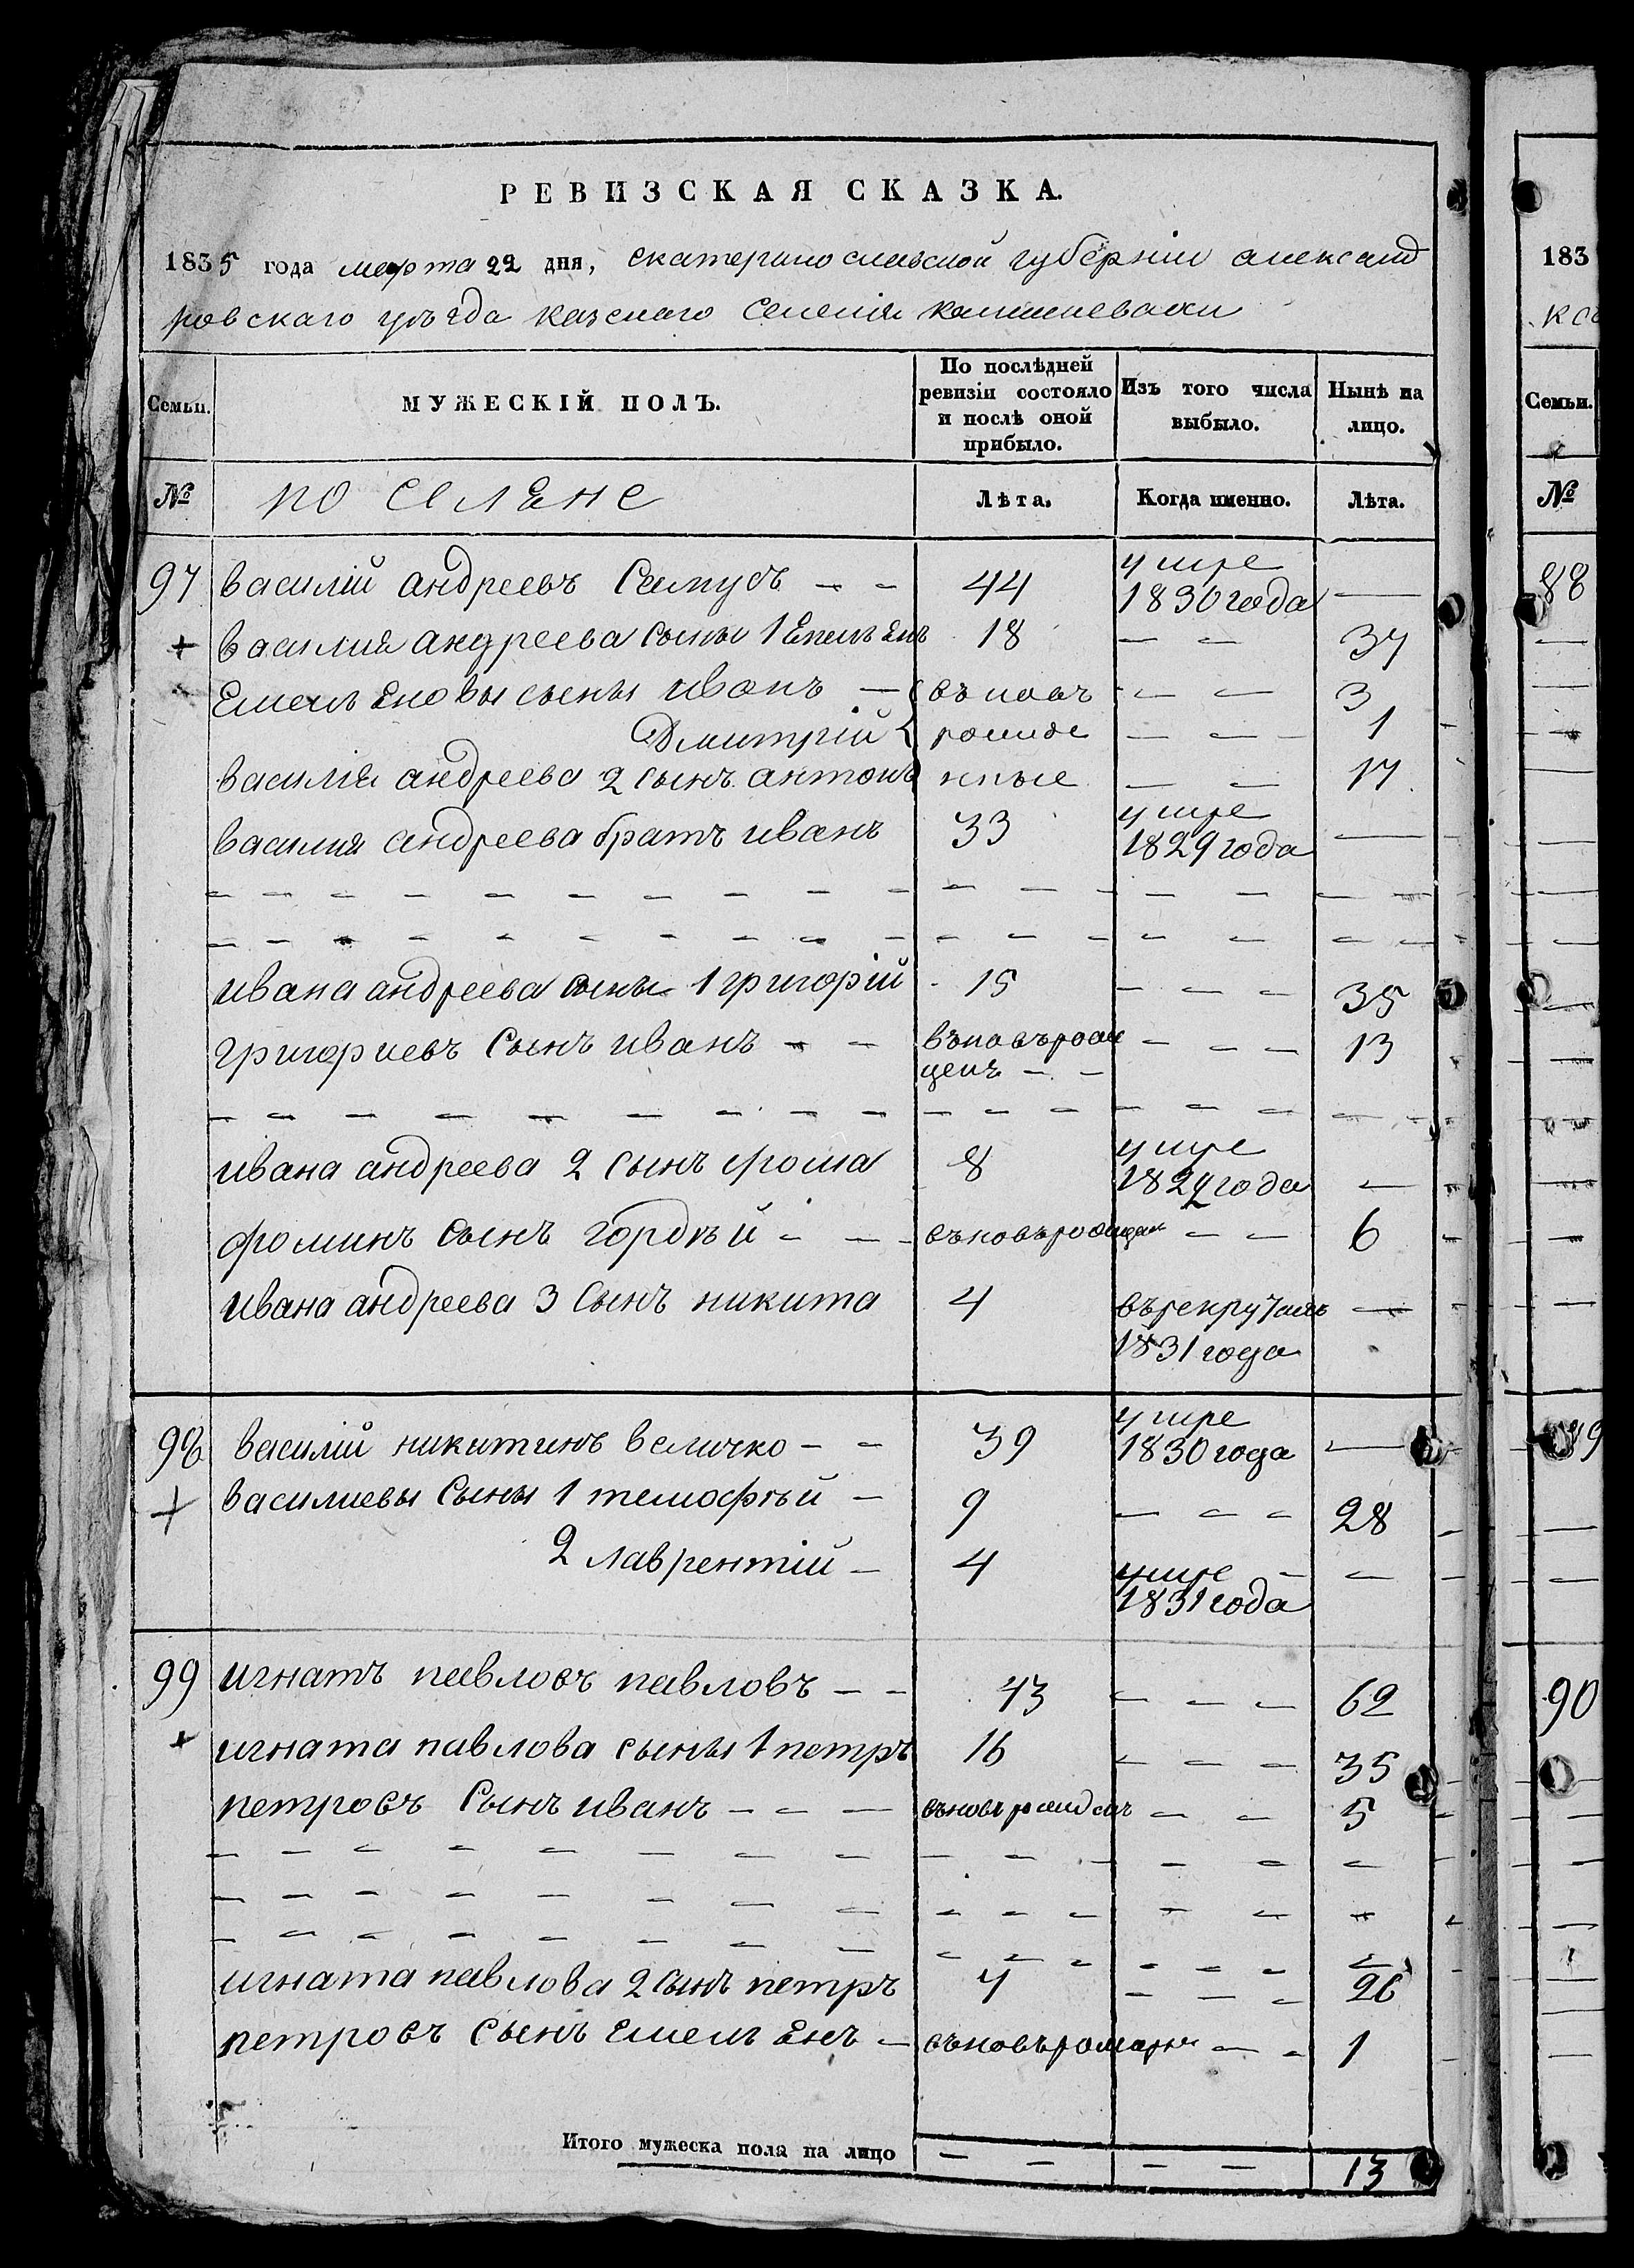 РЕВИЗСКАЯ СКАЗКА.
1835 года марта 22 дня, екатеринославской губернии александ
ровскаго уѣзда казенаго селения
Семьи. МУЖЕСКІЙ ПОЛЪ. По послѣдней ревизіи состояло и послѣ оной прибыло. Изъ того числа выбыло. Нынѣ на лицо.
№ поселене Лѣта. Когда именно. Лѣта.
97 василій андреевъ 44 умре 1830 года —
+ василия андреева сыны 1 Емелъянъ 18 — — 37
Емелъяновы сыны иванъ — въновъ — — 3
Дмитрій рожде — — — 1
василия андреева 2 сынъ антонъ нные — — 17
василия андреева братъ иванъ 33 умре 1829 года —
ивана андреева сыны 1 григорій 15 — — — 35
григориевъ сынъ иванъ — — въновърож денъ — — — — — 13
ивана андреева 2 сынъ фома 8 умре 1829 года —
фоминъ сынъ гордѣй — — — въновърожден — — 6
ивана андреева 3 сынъ никита 4 върекрутахъ 1831 года —
98 василій никитинъ величко — — 39 умре 1830 года —
+ василиевы сыны 1 темофѣй — 9 — — — 28
2 лаврентій — 4 умре — 1831 года —
99 игнатъ павловъ павловъ — — 43 — — — 62
+ игната павлова сыны 1 петръ 16 — — — 35
петровъ сынъ иванъ — — — въновърожденъ — — 5
игната павлова 2 сынъ петръ 7 — — — 26
петровъ сынъ емелъянъ — въновърожденъ — — 1
Итого мужеска пола на лицо — — — — 13
183
Семьи.
№
88
90